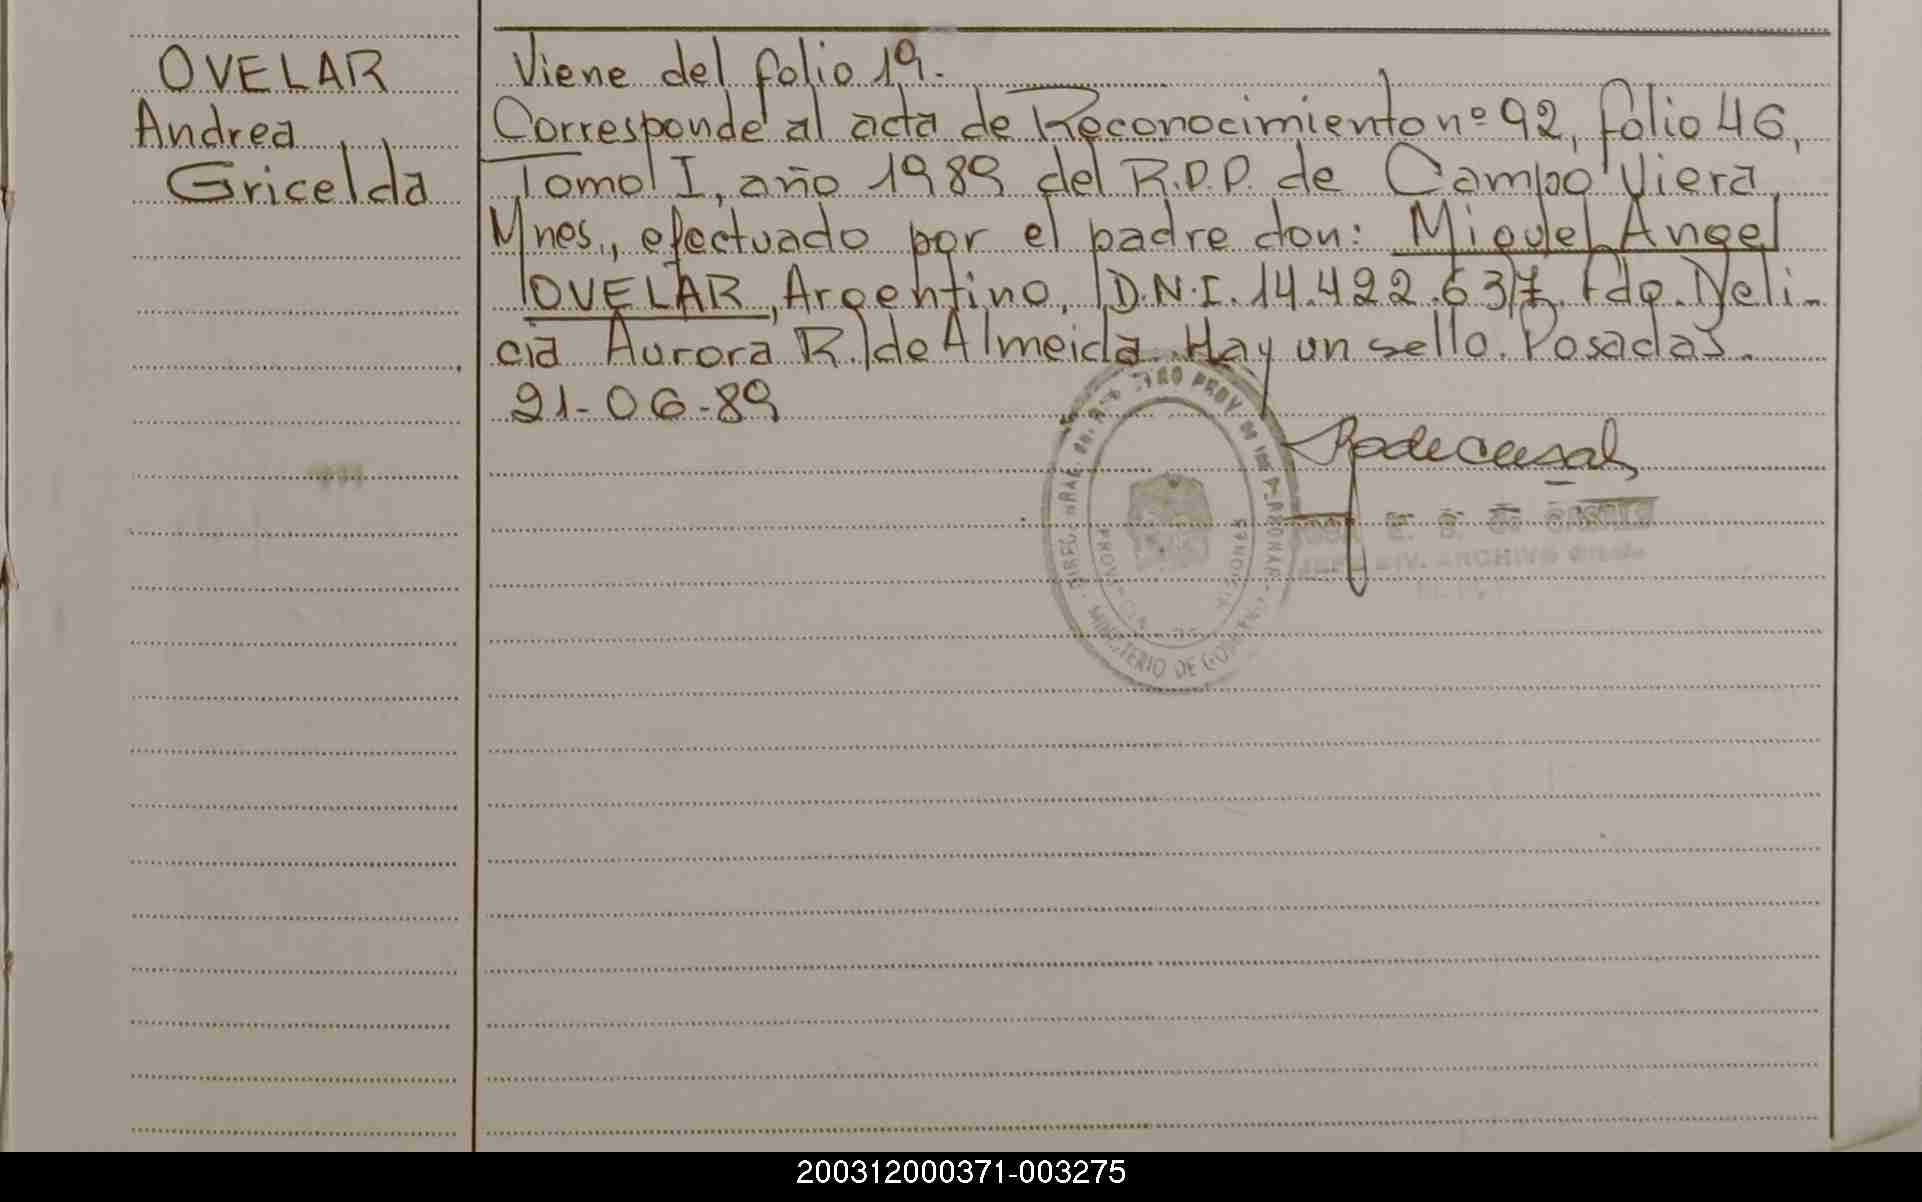 OVELAR
Andrea
Gricelda
Viene del folio 19.
Corresponde al acta de Reconocimiento nº 92, folio 46,
Tomo I, año 1989 del R.P.P. de Campo Viera,
Mnes., efectuado por el padre don: Miguel Angel
OVELAR, Argentino, D.N.I. 14.422.637. Fdo. Neli-
cia Aurora R. de Almeida. Hay un sello. Posadas.
21-06-89
PROV. DE LAS PERSONAS
MINISTERIO DE GOBIERNO
MISIONES
DIV. ARCHIVO
200312000371-003275